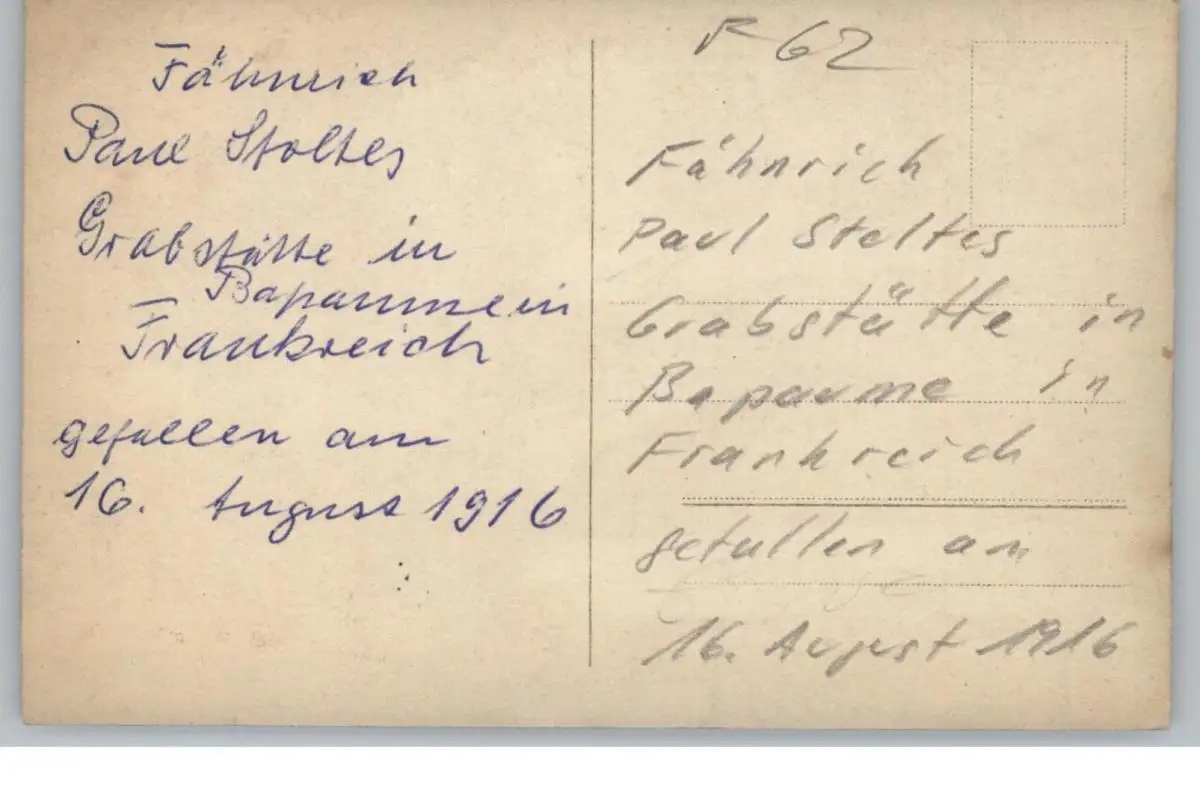 Fähnrich
Paul Stoltes
Grabstätte in
Bapaume in
Frankreich
gefallen am
16. August 1916
F 62
Fähnrich
Paul Steltes
Grabstätte in
Bapaume in
Frankreich
gefallen am
16. August 1916